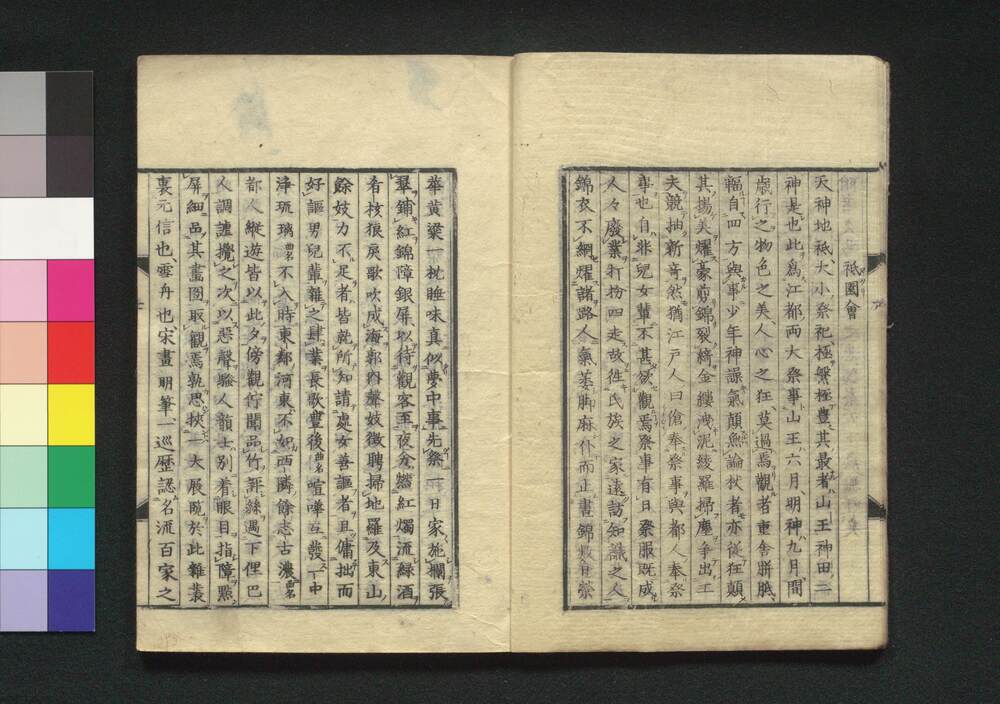 祇園會
天神地祇大小祭祀極繁極豊其最者山王神田二
神是也此爲江都両大祭事山王六月明神九月間
歳行之物色之美人心之狂莫過焉觀者重舎騈胝
輻自四方與事少年神譟氣顛無論扙者亦従狂顛
其揚美燿豪剪錦裂綺金縷洩泥綾羅掃塵争出工
夫競抽新奇然猶江戸人曰傖奉祭事與都人奉祭
事也自非兒女輩不甚欲觀焉祭事有日祭服既成
人々廢業打扮四走故徃氏族之家遠訪知識之人
錦衣不絅燿諸路人氣萎脚麻仆而止晝錦數日榮
華黄粱一枕睡味真似夢中事先祭一日家施欄張
幕鋪紅錦障銀屏以待觀客至夜分燃紅燭流緑酒
肴核狼戻歌吹成海郭内聲妓徴聘掃地羅及東山
餘妓力不足者皆就所知請處女善謳者且傭拙而
好謳男兒輩雜之肆業長歌豊後曲名喧嘩互發一中
浄琉璃曲名不入時東都河東不如西隣餘志古濃曲名
都人縦遊皆以此夕傍觀佇聞品竹評絲遇下俚巴
人調謹攪之次以惡聲驚人韻士別着眼目指障點
屏細邑其畫圖取觀焉孰思挾一大展覧於此雜叢
裏元信也雪舟也宋畫明筆一巡歴認名流百家之